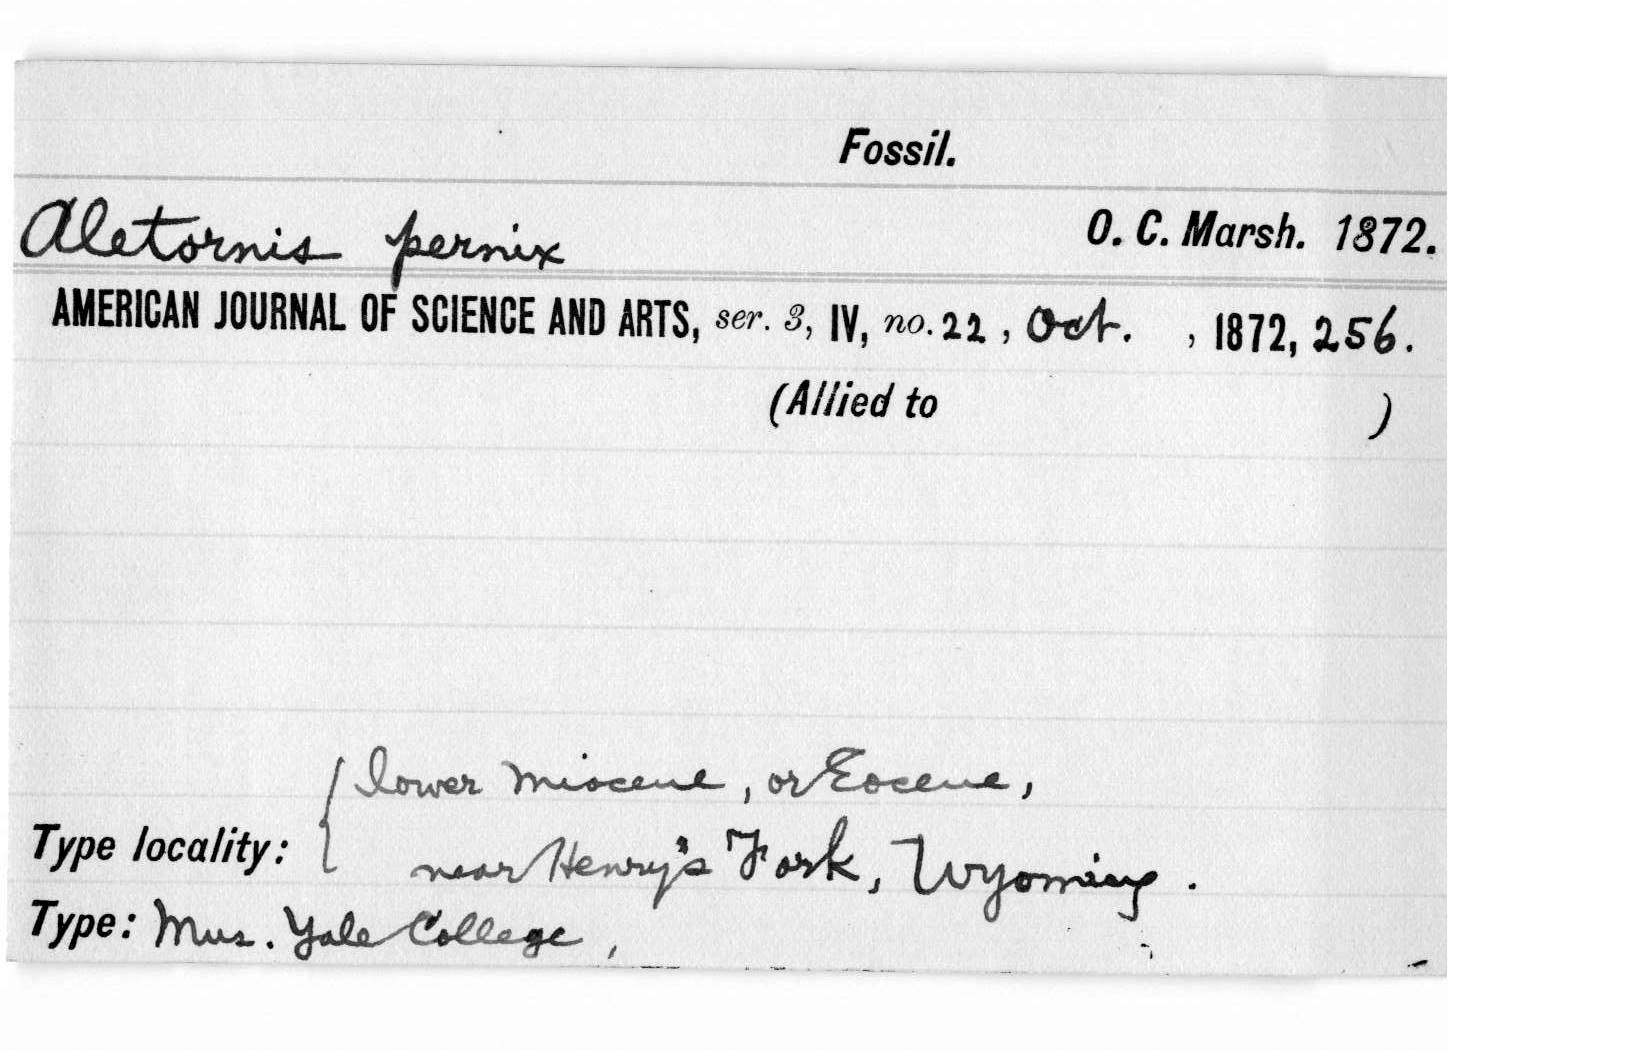 Fossil.
Aletornis pernix O. C. Marsh. 1872.
AMERICAN JOURNAL OF SCIENCE AND ARTS, ser. 3, IV, no. 22, Oct. , 1872, 256.
(Allied to )
lower Miocene, or Eocene,
Type locality: { near Henry's Fork, Wyoming.
Type: Mus. Yale College,